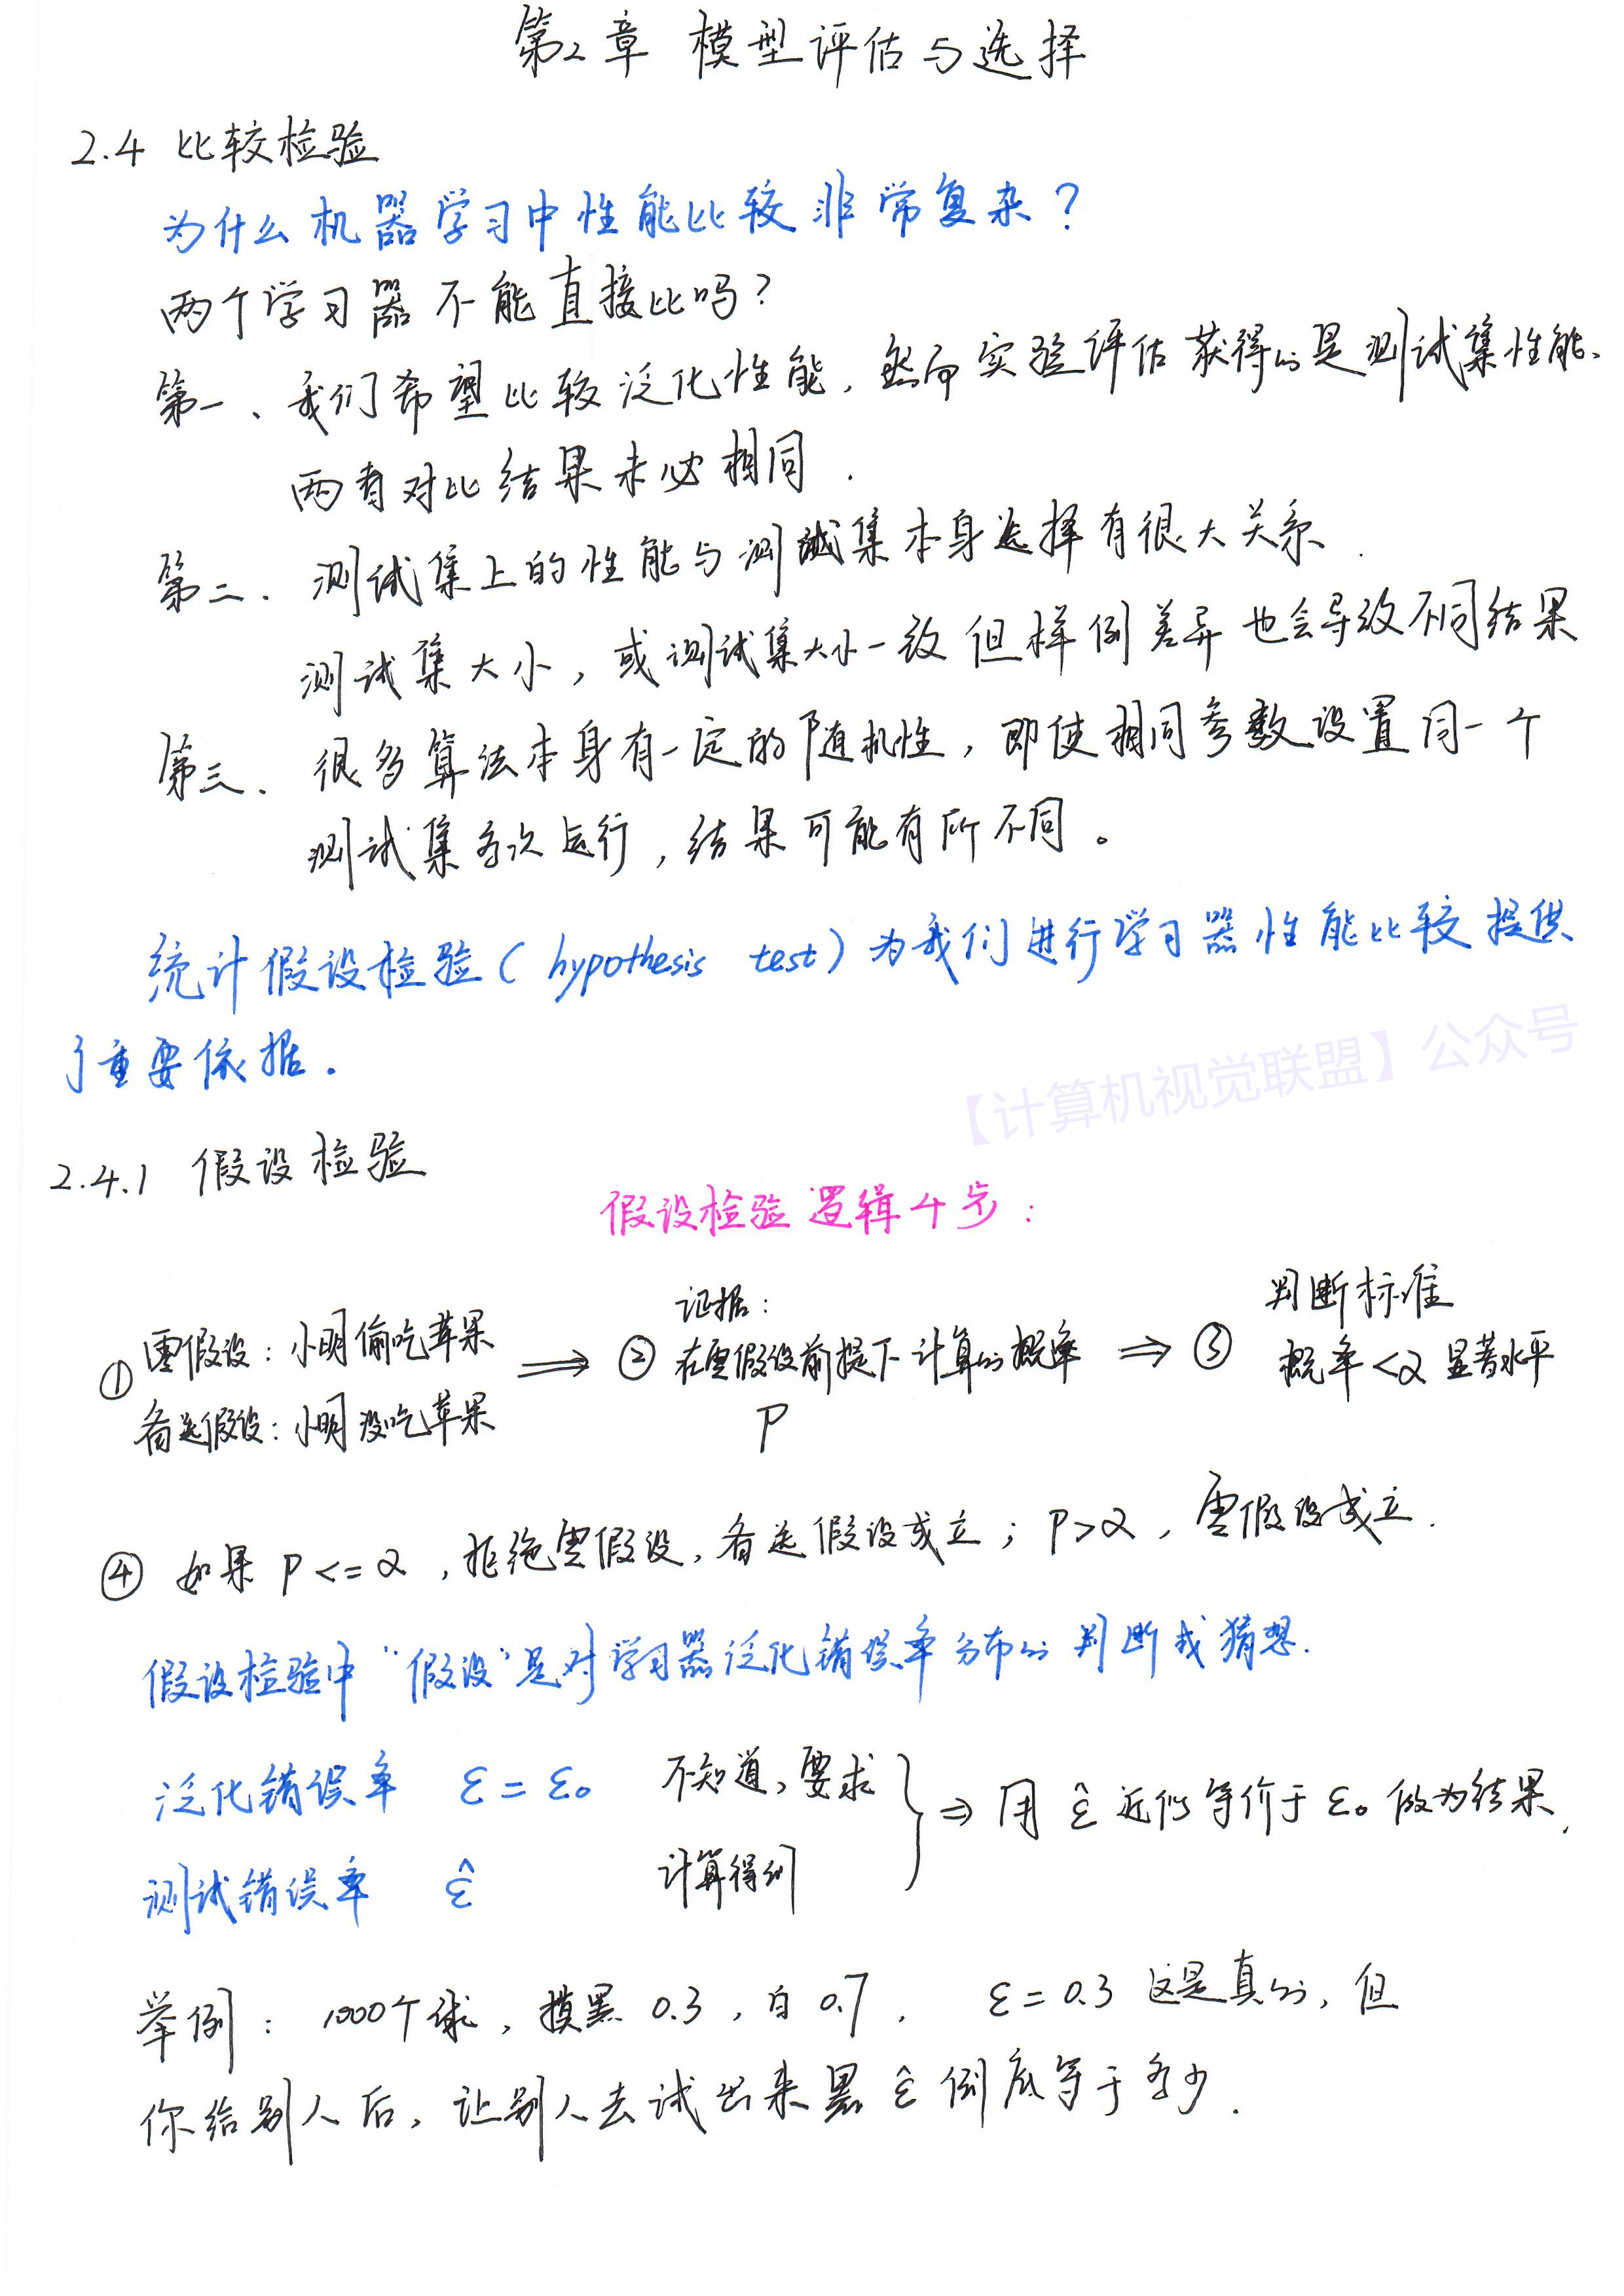 第2章 模型评估与选择
2.4 比较检验
为什么机器学习中性能比较非常复杂？
两个学习器不能直接比吗？
第一、我们希望比较泛化性能，然而实验评估获得的是测试集性能、
两者对比结果未必相同.
第二、测试集上的性能与测试集本身选择有很大关系.
测试集大小，或测试集大小一致但样例差异也会导致不同结果
第三、很多算法本身有一定的随机性，即使相同参数设置同一个
测试集多次运行，结果可能有所不同。
统计假设检验(hypothesis test)为我们进行学习器性能比较提供
了重要依据.
【计算机视觉联盟】公众号
2.4.1 假设检验
假设检验逻辑4步：
① 零假设：小明偷吃苹果
备选假设：小明没吃苹果
⇒ ② 证据：
在零假设前提下计算的概率
P
⇒ ③ 判断标准
概率<α 显著水平
④ 如果 P<=α，拒绝零假设，备选假设成立；P>α，零假设成立.
假设检验中"假设"是对学习器泛化错误率分布的判断或猜想.
泛化错误率 ε=ε₀ 不知道，要求
测试错误率 ε̂ 计算得到
⇒ 用 ε̂ 近似等价于 ε₀ 做为结果，
举例：1000个球，摸黑 0.3，白 0.7， ε=0.3 这是真的，但
你给别人后，让别人去试出来黑 ε̂ 倒底等于多少.